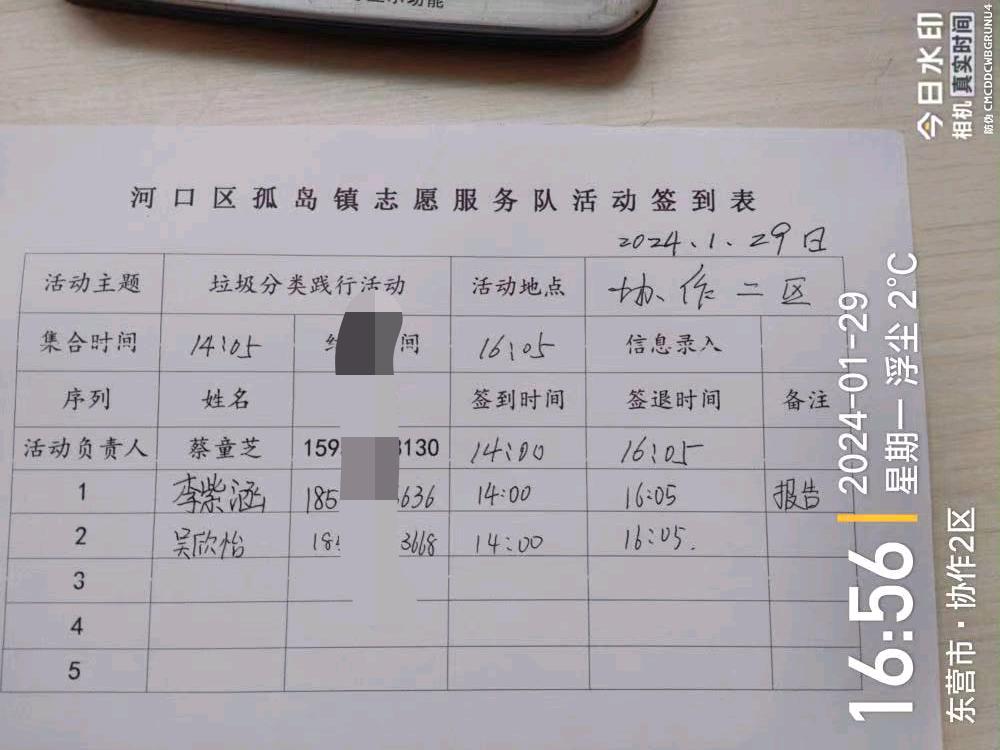 示功能
河口区孤岛镇志愿服务队活动签到表
2024.1.29日
活动主题 垃圾分类践行活动 活动地点 协作二区
集合时间 14:05 间 16:05 信息录入
序列 姓名 签到时间 签退时间 备注
活动负责人 蔡童芝 159 3130 14:00 16:05
1 李紫涵 185 636 14:00 16:05 报告
2 吴欣怡 18 3668 14:00 16:05.
3
4
5
今日水印
相机 真实时间
防伪 CMCDDCWBGRUNU4
16:56
2024-01-29
星期一 浮尘 2°C
东营市·协作2区